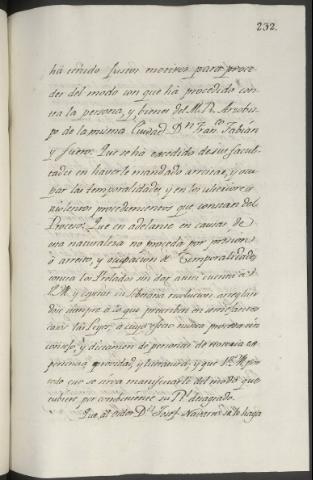 232.
ha tenido justos motivos para proce
der del modo con que ha procedido con
tra la persona, y bienes del M. R. Arzobis
po de la misma Ciudad Dn Franco Fabián
y fuero. Que se ha excedido de sus facul
tades en haverle mandado arrestar, y ocu
par las temporalidades, y en los ulteriores
violentos procedimientos que constan del
Proceso. Que en adelante en causas de
esta naturaleza no proceda por prision
o arresto, y ocupación de Temporalidades
contra los Prelados sin dar antes cuenta a
V. M. y esperar su soberana resolucion arreglan
dose siempre a lo que prescriben en semejantes
casos las Leyes, a cuyo efecto
consejo, y dictamen de personas de
periencia, probidad, y literatura, y que V. M. por
todo esto se sirva manifestarle del modo que
tubiere por conveniente su Rl. desagrado.
Que al oidor Dn Josef se le haga